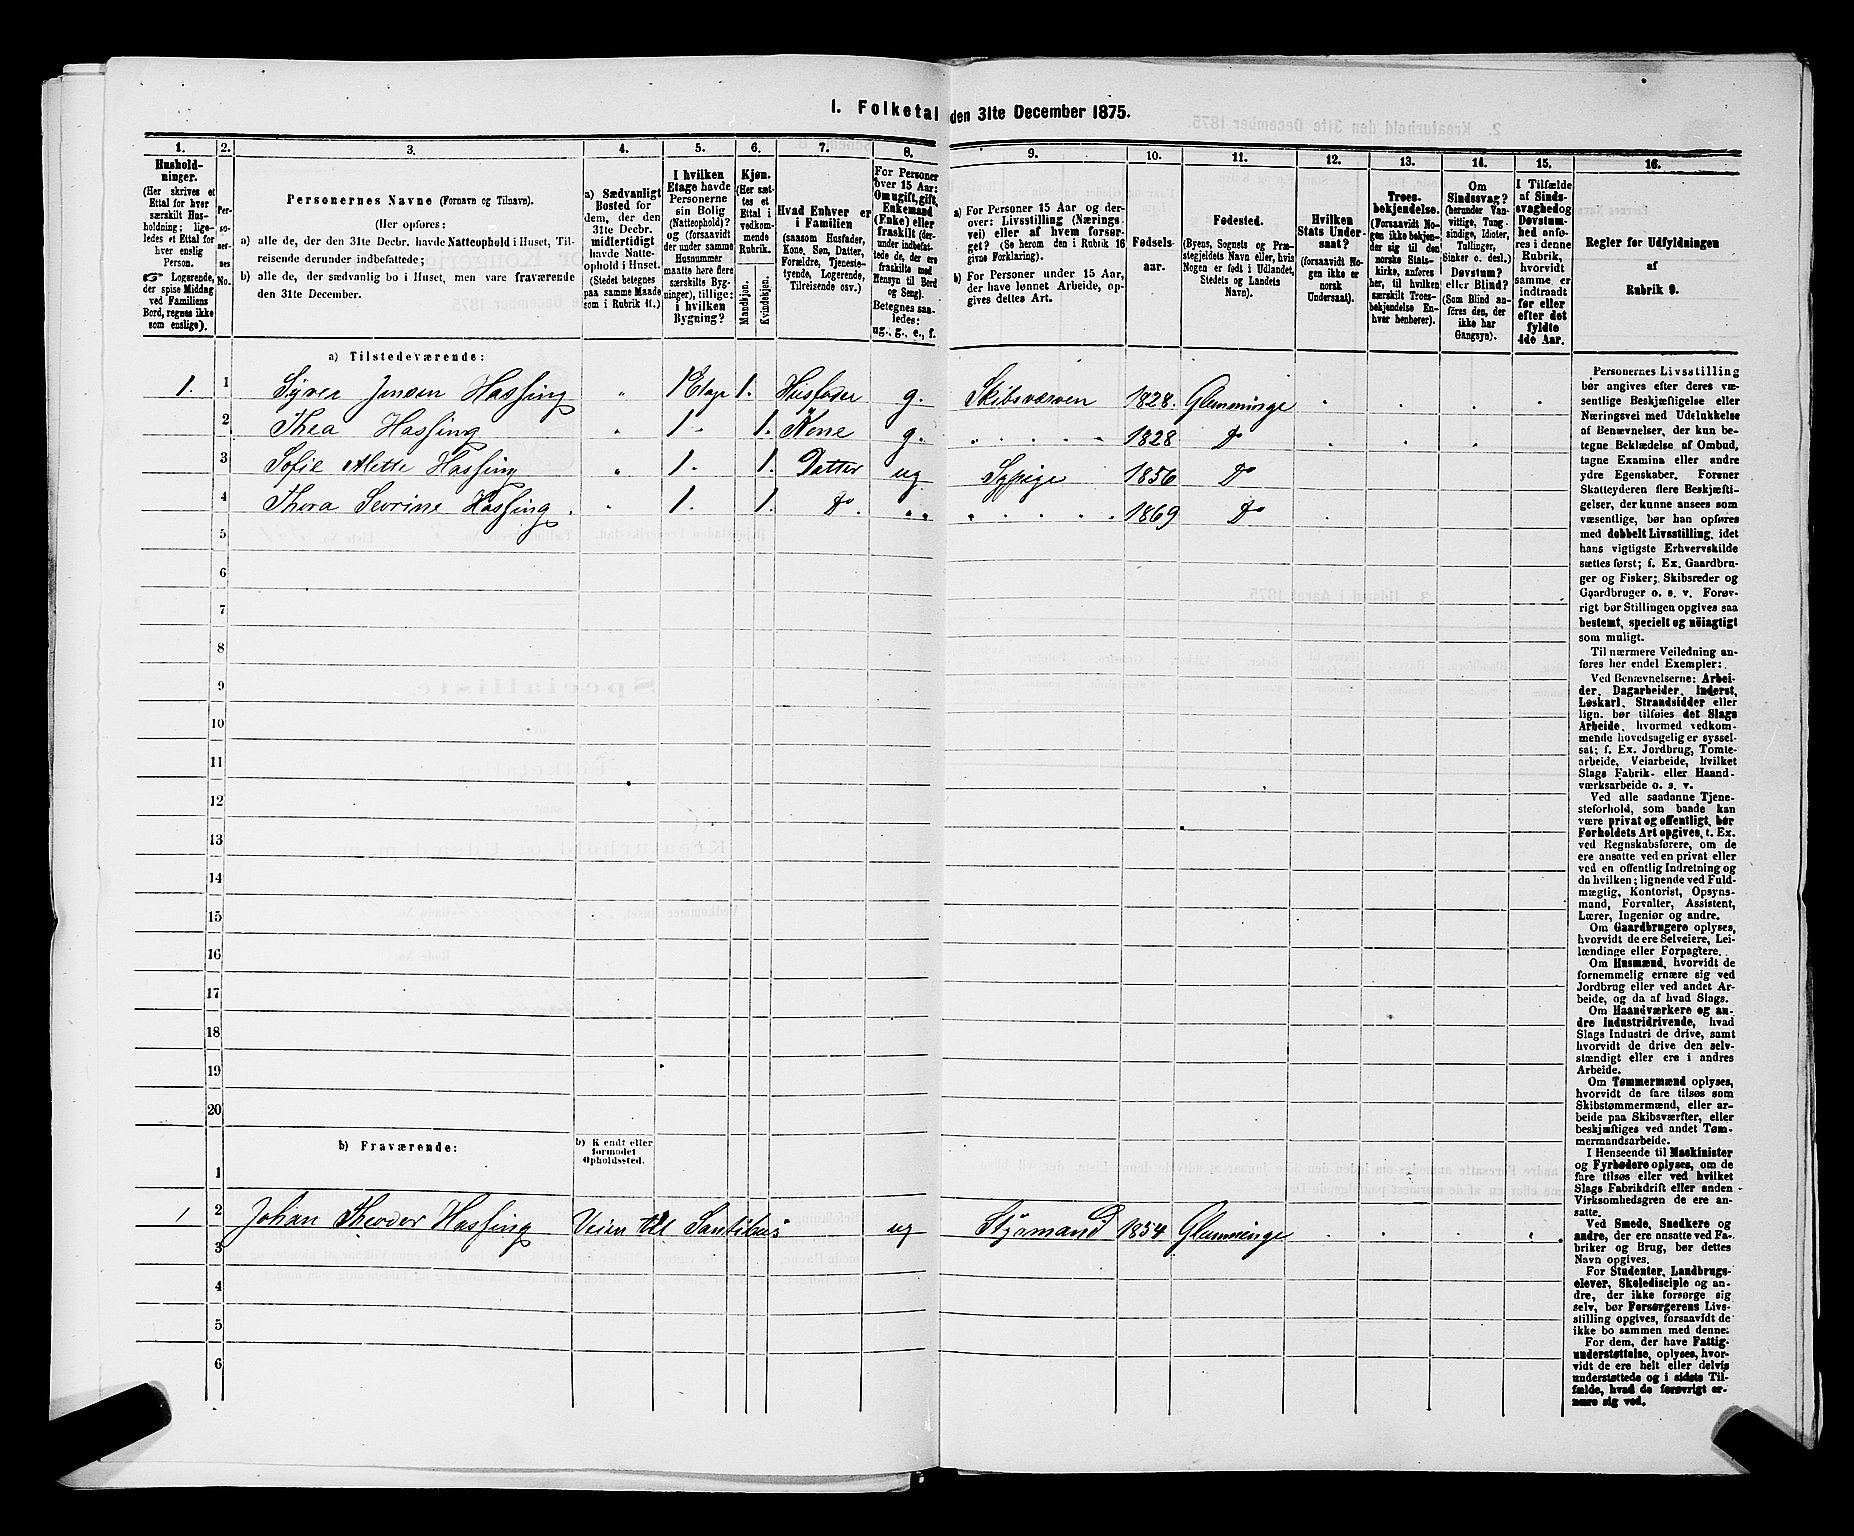 I. Folketal den 31te December 1875.
1. 2. 3. 4. 5. 6. 7. 8. 9. 10. 11. 12. 13. 14. 15. 16.
Husholdninger.
(Her skrives et
Ettal for hver
særskilt Husholdning;
ligeledes et Ettal for
hver enslig
Person.
Logerende,
der spise Middag
ved Familiens
Bord, regnes ikke
som enslige).
Personernes No.
Personernes Navne (Fornavn og Tilnavn).
(Her opføres:
a) alle de, der den 31te Decbr. havde Natteophold i Huset, Tilreisende derunder indbefattede;
b) alle de, der sædvanlig bo i Huset, men vare fraværende
den 31te December.
a) Sædvanligt
Bosted for
dem, der den
31te Decbr.
midlertidigt
havde Natteophold i Huset.
(Stedet betegnes
paa samme Maade
som i Rubrik 11.)
I hvilken
Etage havde
Personerne
sin Bolig
(Natteophold)?
og (forsaavidt
der under samme
Husnummer
maatte høre flere
særskilte Bygninger), tillige:
i hvilken
Bygning?
Kjøn.
(Her sættes et
Ettal i
vedkommende
Rubrik.
Mandkjøn.
Kvindekjøn.
Hvad Enhver er
i Familien
(saasom Husfader,
Kone, Søn, Datter,
Forældre, Tjenestetyende, Logerende,
Tilreisende osv.)
For Personer
over 15 Aar:
Om ugift, gift,
Enkemand
(Enke) eller
fraskilt (derunder indbefattede de, der ere
fraskilte med
Hensyn til Bord
og Seng).
Betegnes saaledes:
ug., g., e., f.
a) For Personer 15 Aar og derover: Livsstilling (Næringsvei) eller af hvem forsørget? (Se herom den i Rubrik 16
givne Forklaring).
b) For Personer under 15 Aar,
der have lønnet Arbeide, opgives dettes Art.
Fødselsaar.
Fødested.
(Byens, Sognets og Præstegjeldets Navn eller, hvis
Nogen er født i Udlandet,
Stedets og Landets
Navn).
Hvilken
Stats Undersaat?
(forsaavidt Nogen ikke er
norsk
Undersaat).
Troesbekjendelse.
(Forsaavidt Nogen ikke bekjender sig til den
norske Statskirke, anføres
her, til hvilken
særskilt Troesbekjendelse Enhver henhører).
Om
Sindssvag?
(herunder Vanvittige, Tungsindige, Idioter,
Tullinger,
Sinker o. desl.)
Døvstum?
eller Blind?
(Som Blind anføres den, der
ikke har
Gangsyn).
I Tilfælde
af Sindssvaghed og
Døvstumhed anføres i denne
Rubrik,
hvorvidt
samme er
indtraadt
før eller
efter det
fyldte
4de Aar.
Regler for Udfyldningen
af
Rubrik 9.
a) Tilstedeværende:
1. 1 Syver Jensen Hassing " 1 Etage 1. Husfader g. Skibsværven 1828. Glemminge
2 Thea Hassing " 1 " 1. Kone g. " 1828 Do
3 Sofie Alette Hassing " 1. 1. Datter ug Sypige 1856 Do
4 Thora Sevrine Hassing. " 1. 1. Do. " 1869 Do
5
6
7
8
9
10
11
12
13
14
15
16
17
18
19
20
b) Fraværende:
b) Kendt eller
formodet
Opholdssted.
1
1 2 Johan Theodor Hassing Veien til Santibus ug Styrmand 1854 Glemminge
3
4
5
6
Personernes Livsstilling
bør angives efter deres væsentlige Beskjæftigelse eller
Næringsvei med Udelukkelse
af Benævnelser, der kun betegne Beklædelse af Ombud,
tagne Examina eller andre
ydre Egenskaber. Forener
Skatteyderen flere Beskjæftigelser, der kunne ansees som
væsentlige, bør han opføres
med dobbelt Livsstilling, idet
hans vigtigste Erhvervskilde
sættes først; f. Ex. Gaardbruger og Fisker; Skibsreder og
Gaardbruger o. s. v. Forøvrigt bør Stillingen opgives saa
bestemt, specielt og nøiagtigt
som muligt.
Til nærmere Veiledning anføres her endel Exempler:
Ved Benævnelserne: Arbeider, Dagarbeider, Inderst,
Løskarl, Strandsidder eller
lign. bør tilføies det Slags
Arbeide, hvormed vedkommende hovedsagelig er sysselsat; f. Ex. Jordbrug, Tomtearbeide, Veiarbeide, hvilket
Slags Fabrik- eller Haandværksarbeide o. s. v.
Ved alle saadanne Tjenesteforhold, som baade kan
være privat og offentligt, bør
Forholdets Art opgives, t. Ex.
ved Regnskabsførere, om de
ere ansatte ved en privat eller
ved en offentlig Indretning og
da hvilken; lignende ved Fuldmægtig, Kontorist, Opsynsmand, Forvalter, Assistent,
Lærer, Ingeniør og andre.
Om Gaardbrugere oplyses,
hvorvidt de ere Selveiere, Leilændinge eller Forpagtere.
Om Husmænd, hvorvidt de
fornemmelig ernære sig ved
Jordbrug eller ved andet Arbeide, og da af hvad Slags.
Om Haandværkere og andre Industridrivende, hvad
Slags Industri de drive, samt
hvorvidt de drive den selvstændigt eller ere i andres
Arbeide.
Om Tømmermænd oplyses,
hvorvidt de fare tilsøs som
Skibstømmermænd, eller arbeide paa Skibsværfter, eller
beskjæftiges ved andet Tømmermandsarbeide.
I Henseende til Maskinister
og Fyrbødere oplyses, om de
fare tilsøs eller ved hvilket
Slags Fabrikdrift eller anden
Virksomhedsgren de ere ansatte.
Ved Smede, Snedkere og
andre, der ere ansatte ved Fabriker og Brug, bør dettes
Navn opgives.
For Studenter, Landbrugselever, Skoledisciple og andre, der ikke forsørge sig
selv, bør Forsørgerens Livsstilling opgives, forsaavidt de
ikke bo sammen med denne.
For dem, der have Fattigunderstøttelse, oplyses, hvorvidt de ere helt eller delvis
understøttede og i sidste Tilfælde, hvad de forøvrigt ernære sig ved.